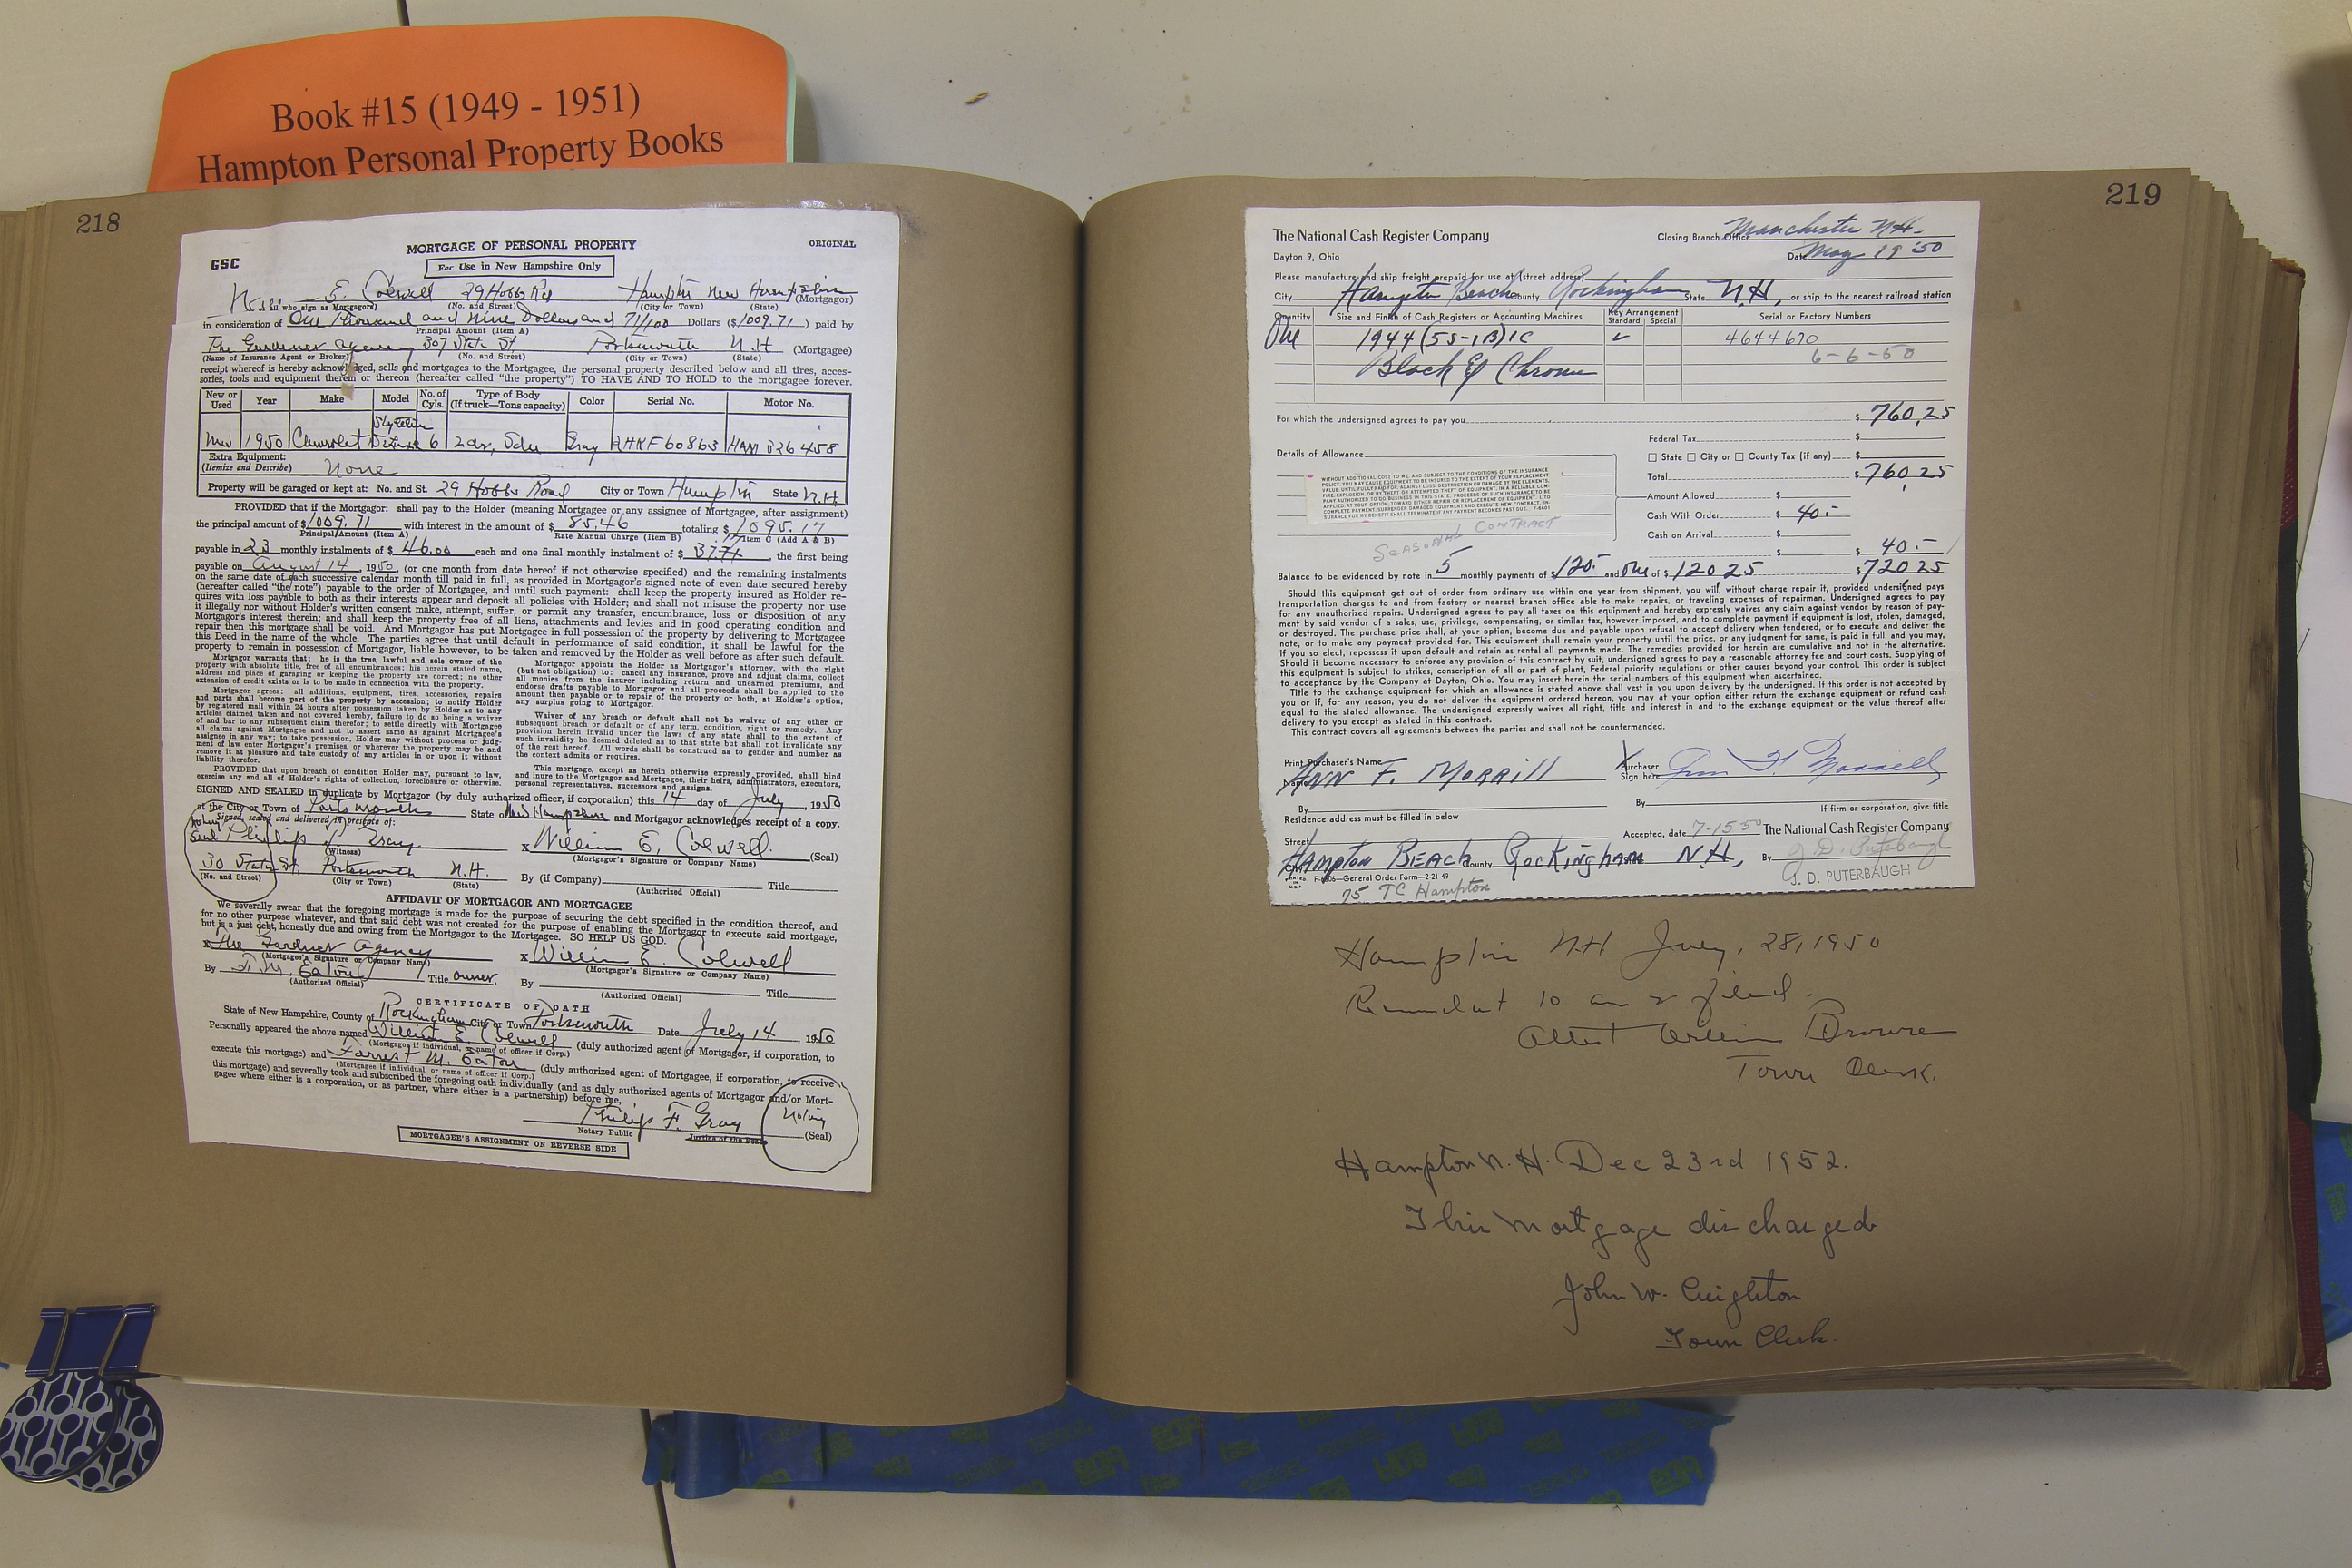 Book #15 (1949 - 1951)
Hampton Personal Property Books
218
GSC
MORTGAGE OF PERSONAL PROPERTY
ORIGINAL
For Use in New Hampshire Only
E. Colwell 29 Hobbs Rd Hampton New Hampshire (Mortgagor)
(No. and Street) (City or Town) (State)
in consideration of One Thousand and Nine Dollars and 71/100 Dollars ($1009.71) paid by
Principal Amount (Item A)
The Gardner Agency 307 State St Portsmouth N.H (Mortgagee)
(Name of Insurance Agent or Broker) (No. and Street) (City or Town) (State)
receipt whereof is hereby acknowledged, sells and mortgages to the Mortgagee, the personal property described below and all tires, acces-
sories, tools and equipment therein or thereon (hereafter called "the property") TO HAVE AND TO HOLD to the mortgagee forever.
New or Used Year Make Model No. of Cyls. Type of Body (If truck—Tons capacity) Color Serial No. Motor No.
New 1950 Chevrolet Styleline Deluxe 6 2 dr, Sdn Gray HAM 326458
Extra Equipment:
(Itemize and Describe) None
Property will be garaged or kept at: No. and St. 29 Hobbs Road City or Town Hampton State N.H
PROVIDED that if the Mortgagor: shall pay to the Holder (meaning Mortgagee or any assignee of Mortgagee, after assignment)
the principal amount of $1009.71 with interest in the amount of $85.46 totaling $1095.17
Principal Amount (Item A) Rate Manual Charge (Item B) Item C (Add A & B)
payable in 23 monthly instalments of $46.00 each and one final monthly instalment of $ , the first being
payable on August 14, 1950, (or one month from date hereof if not otherwise specified) and the remaining instalments
on the same date of each successive calendar month till paid in full, as provided in Mortgagor's signed note of even date secured hereby
(hereafter called "the note") payable to the order of Mortgagee, and until such payment: shall keep the property insured as Holder re-
quires with loss payable to both as their interests appear and deposit all policies with Holder; and shall not misuse the property nor use
it illegally nor without Holder's written consent make, attempt, suffer, or permit any transfer, encumbrance, loss or disposition of any
Mortgagor's interest therein; and shall keep the property free of all liens, attachments and levies and in good operating condition and
repair then this mortgage shall be void. And Mortgagor has put Mortgagee in full possession of the property by delivering to Mortgagee
this Deed in the name of the whole. The parties agree that until default in performance of said condition, it shall be lawful for the
property to remain in possession of Mortgagor, liable however, to be taken and removed by the Holder as well before as after such default.
Mortgagor warrants that: he is the true, lawful and sole owner of the
property with absolute title, free of all encumbrances; his herein stated name,
address and place of garaging or keeping the property are correct; no other
extension of credit exists or is to be made in connection with the property.
Mortgagor agrees: all additions, equipment, tires, accessories, repairs
and parts shall become part of the property by accession; to notify Holder
by registered mail within 24 hours after possession taken by Holder as to any
articles claimed taken and not covered hereby, failure to do so being a waiver
of and bar to any subsequent claim therefor; to settle directly with Mortgagee
all claims against Mortgagee and not to assert same as against Mortgagee's
assignee in any way; to take possession, Holder may without process or judg-
ment of law enter Mortgagor's premises, or wherever the property may be and
remove it at pleasure and take custody of any articles in or upon it without
liability therefor.
PROVIDED that upon breach of condition Holder may, pursuant to law,
exercise any and all of Holder's rights of collection, foreclosure or otherwise.
Mortgagor appoints the Holder as Mortgagor's attorney, with the right
(but not obligation) to: cancel any insurance, prove and adjust claims, collect
all monies from the insurer including return and unearned premiums, and
endorse drafts payable to Mortgagor and all proceeds shall be applied to the
amount then payable or to repair of the property or both, at Holder's option,
any surplus going to Mortgagor.
Waiver of any breach or default shall not be waiver of any other or
subsequent breach or default or of any term, condition, right or remedy. Any
provision herein invalid under the laws of any state shall to the extent of
such invalidity be deemed deleted as to that state but shall not invalidate any
of the rest hereof. All words shall be construed as to gender and number as
the context admits or requires.
This mortgage, except as herein otherwise expressly provided, shall bind
and inure to the Mortgagor and Mortgagee, their heirs, administrators, executors,
personal representatives, successors and assigns.
SIGNED AND SEALED in duplicate by Mortgagor (by duly authorized officer, if corporation) this 14 day of July, 1950
at the City or Town of Portsmouth State of New Hampshire and Mortgagor acknowledges receipt of a copy.
Signed, sealed and delivered in presence of:
Notary Seal Philip F. Gray x William E. Colwell (Seal)
(Witness) (Mortgagor's Signature or Company Name)
30 State St, Portsmouth N.H. By (if Company) Title
(No. and Street) (City or Town) (State) (Authorized Official)
AFFIDAVIT OF MORTGAGOR AND MORTGAGEE
We severally swear that the foregoing mortgage is made for the purpose of securing the debt specified in the condition thereof, and
for no other purpose whatever, and that said debt was not created for the purpose of enabling the Mortgagor to execute said mortgage,
but is a just debt, honestly due and owing from the Mortgagor to the Mortgagee. SO HELP US GOD.
x The Gardner Agency x William E. Colwell
(Mortgagee's Signature or Company Name) (Mortgagor's Signature or Company Name)
By F. M. Eaton Title owner. By Title
(Authorized Official) (Authorized Official)
CERTIFICATE OF OATH
State of New Hampshire, County of Rockingham City or Town Portsmouth Date July 14, 1950
Personally appeared the above named William E. Colwell (duly authorized agent of Mortgagor, if corporation, to
(Mortgagor if individual, or name of officer if Corp.)
execute this mortgage) and Forrest M. Eaton (duly authorized agent of Mortgagee, if corporation, to receive
(Mortgagee if individual, or name of officer if Corp.)
this mortgage) and severally took and subscribed the foregoing oath individually (and as duly authorized agents of Mortgagor and/or Mort-
gagee where either is a corporation, or as partner, where either is a partnership) before me,
Philip F. Gray Notary (Seal)
Notary Public Justice of the Peace
MORTGAGEE'S ASSIGNMENT ON REVERSE SIDE
219
The National Cash Register Company
Dayton 9, Ohio
Closing Branch Office Manchester N.H.
Date May 19 '50
Please manufacture and ship freight prepaid for use at (street address)
City Hampton Beach County Rockingham State N.H., or ship to the nearest railroad station
Quantity Size and Finish of Cash Registers or Accounting Machines Key Arrangement Standard Special Serial or Factory Numbers
One 1944 (5S-1B) 1C ✓ 4644670
Black & Chrome 6-6-50
For which the undersigned agrees to pay you $ 760.25
Federal Tax $
Details of Allowance
☐ State ☐ City or ☐ County Tax (if any) $
Total $ 760.25
WITHOUT ADDITIONAL COST TO ME, AND SUBJECT TO THE CONDITIONS OF THE INSURANCE
POLICY, YOU MAY CAUSE EQUIPMENT TO BE INSURED TO THE EXTENT OF YOUR REPLACEMENT
VALUE, UNTIL FULLY PAID FOR, AGAINST LOSS, DESTRUCTION OR DAMAGE BY THE ELEMENTS,
FIRE, EXPLOSION, OR BY THEFT OR ATTEMPTED THEFT OF EQUIPMENT, IN A RELIABLE COM-
PANY AUTHORIZED TO DO BUSINESS IN THIS STATE. PROCEEDS OF SUCH INSURANCE TO BE
APPLIED, AT YOUR OPTION, TOWARD EITHER REPAIR OR REPLACEMENT OF EQUIPMENT. I, TO
COMPLETE PAYMENT, SURRENDER DAMAGED EQUIPMENT AND EXECUTE NEW CONTRACT. IN-
SURANCE FOR MY BENEFIT SHALL TERMINATE IF ANY PAYMENT BECOMES PAST DUE. F-6601
Amount Allowed $
Cash With Order $ 40.-
SEASONAL CONTRACT
Cash on Arrival $
$ $ 40.-
Balance to be evidenced by note in 5 monthly payments of $120.- and One of $120.25 $720.25
Should this equipment get out of order from ordinary use within one year from shipment, you will, without charge repair it, provided undersigned pays
transportation charges to and from factory or nearest branch office able to make repairs, or traveling expenses of repairman. Undersigned agrees to pay
for any unauthorized repairs. Undersigned agrees to pay all taxes on this equipment and hereby expressly waives any claim against vendor by reason of pay-
ment by said vendor of a sales, use, privilege, compensating, or similar tax, however imposed, and to complete payment if equipment is lost, stolen, damaged,
or destroyed. The purchase price shall, at your option, become due and payable upon refusal to accept delivery when tendered, or to execute and deliver the
note, or to make any payment provided for. This equipment shall remain your property until the price, or any judgment for same, is paid in full, and you may,
if you so elect, repossess it upon default and retain as rental all payments made. The remedies provided for herein are cumulative and not in the alternative.
Should it become necessary to enforce any provision of this contract by suit, undersigned agrees to pay a reasonable attorney fee and court costs. Supplying of
this equipment is subject to strikes, conscription of all or part of plant, Federal priority regulations or other causes beyond your control. This order is subject
to acceptance by the Company at Dayton, Ohio. You may insert herein the serial numbers of this equipment when ascertained.
Title to the exchange equipment for which an allowance is stated above shall vest in you upon delivery by the undersigned. If this order is not accepted by
you or if, for any reason, you do not deliver the equipment ordered hereon, you may at your option either return the exchange equipment or refund cash
equal to the stated allowance. The undersigned expressly waives all right, title and interest in and to the exchange equipment or the value thereof after
delivery to you except as stated in this contract.
This contract covers all agreements between the parties and shall not be countermanded.
Print Purchaser's Name X Purchaser
Name ANN F. MORRILL Sign here Ann F. Morrill
By By
If firm or corporation, give title
Residence address must be filled in below
Street Accepted, date 7-15 50 The National Cash Register Company
HAMPTON BEACH County ROCKINGHAM N.H. By J. D. Puterbaugh
F-6606—General Order Form—2-21-49 J. D. PUTERBAUGH
75 TC Hampton
Hampton N.H July, 28, 1950
Received at 10 am & filed.
Attest William Browne
Town Clerk.
Hampton N. H. Dec 23rd 1952.
This Mortgage discharged
John W. Creighton
Town Clerk.